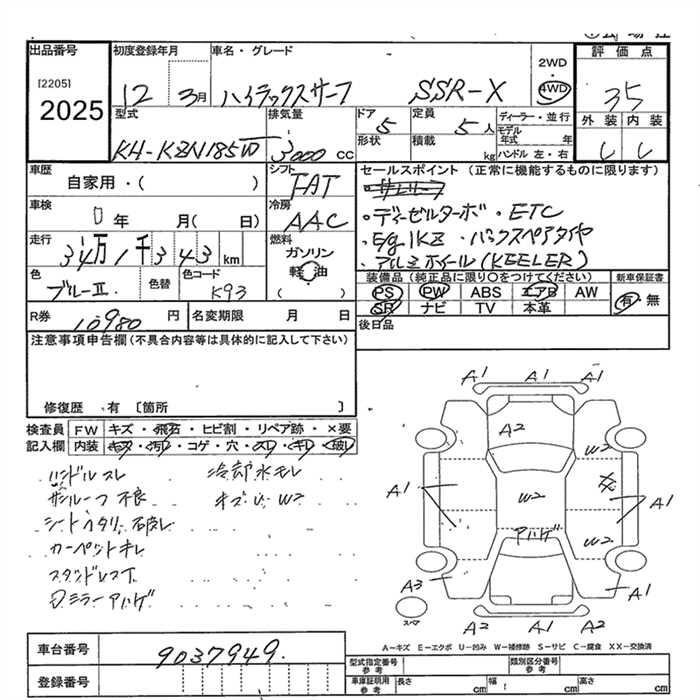 出品番号 初度登録年月 車名・グレード 2WD 評価点
[2205]
2025
12 3月 ハイラックスサーフ SSR-X 4WD 35
外装 内装
型式 排気量 ドア 5 定員 5人 ディーラー・並行
モデル年式 年
KH-KZN185W 3000cc 形状 積載 kg ハンドル 左・右
車歴 シフト セールスポイント (正常に機能するものに限ります)
自家用・( ) FAT
車検 冷房
0年 月( 日) AAC
・ディーゼルターボ・ETC
・E/g 1KZ ・バックスペアタイヤ
・アルミホイール(KEELER)
走行 燃料
34万1千343km ガソリン
軽油
( )
色 色替 色コード
ブルーⅡ K93
装備品 (純正品に限り○をつけてください) 新車保証書
PS PW ABS エアB AW 有・無
SR ナビ TV 本革
R券 10980円 名変期限 月 日 後日品
注意事項申告欄(不具合内容等は具体的に記入して下さい)
修復歴・有〔箇所 〕
検査員 FW キズ・飛石・ヒビ割・リペア跡・×要
記入欄 内装 キズ・汚レ・コゲ・穴・スレ・キレ・破レ
ハンドルスレ 冷却水モレ
サンルーフ不良 キズ・U・W2
シートヘタリ、破レ
カーペントキレ
Dミラーアハゲ
A1 A1 A1
A2
W2
A1 W2 A1
アハゲ W2
A3 A1
スペア
A2 A2 A1
A-キズ E-エクボ U-凹み W-補修跡 S-サビ C-腐食 XX-交換済
車台番号 9037949.
登録番号
型式指定番号 参考 類別区分番号 参考
車庫証明用 参考 長さ cm 幅 cm 高さ cm